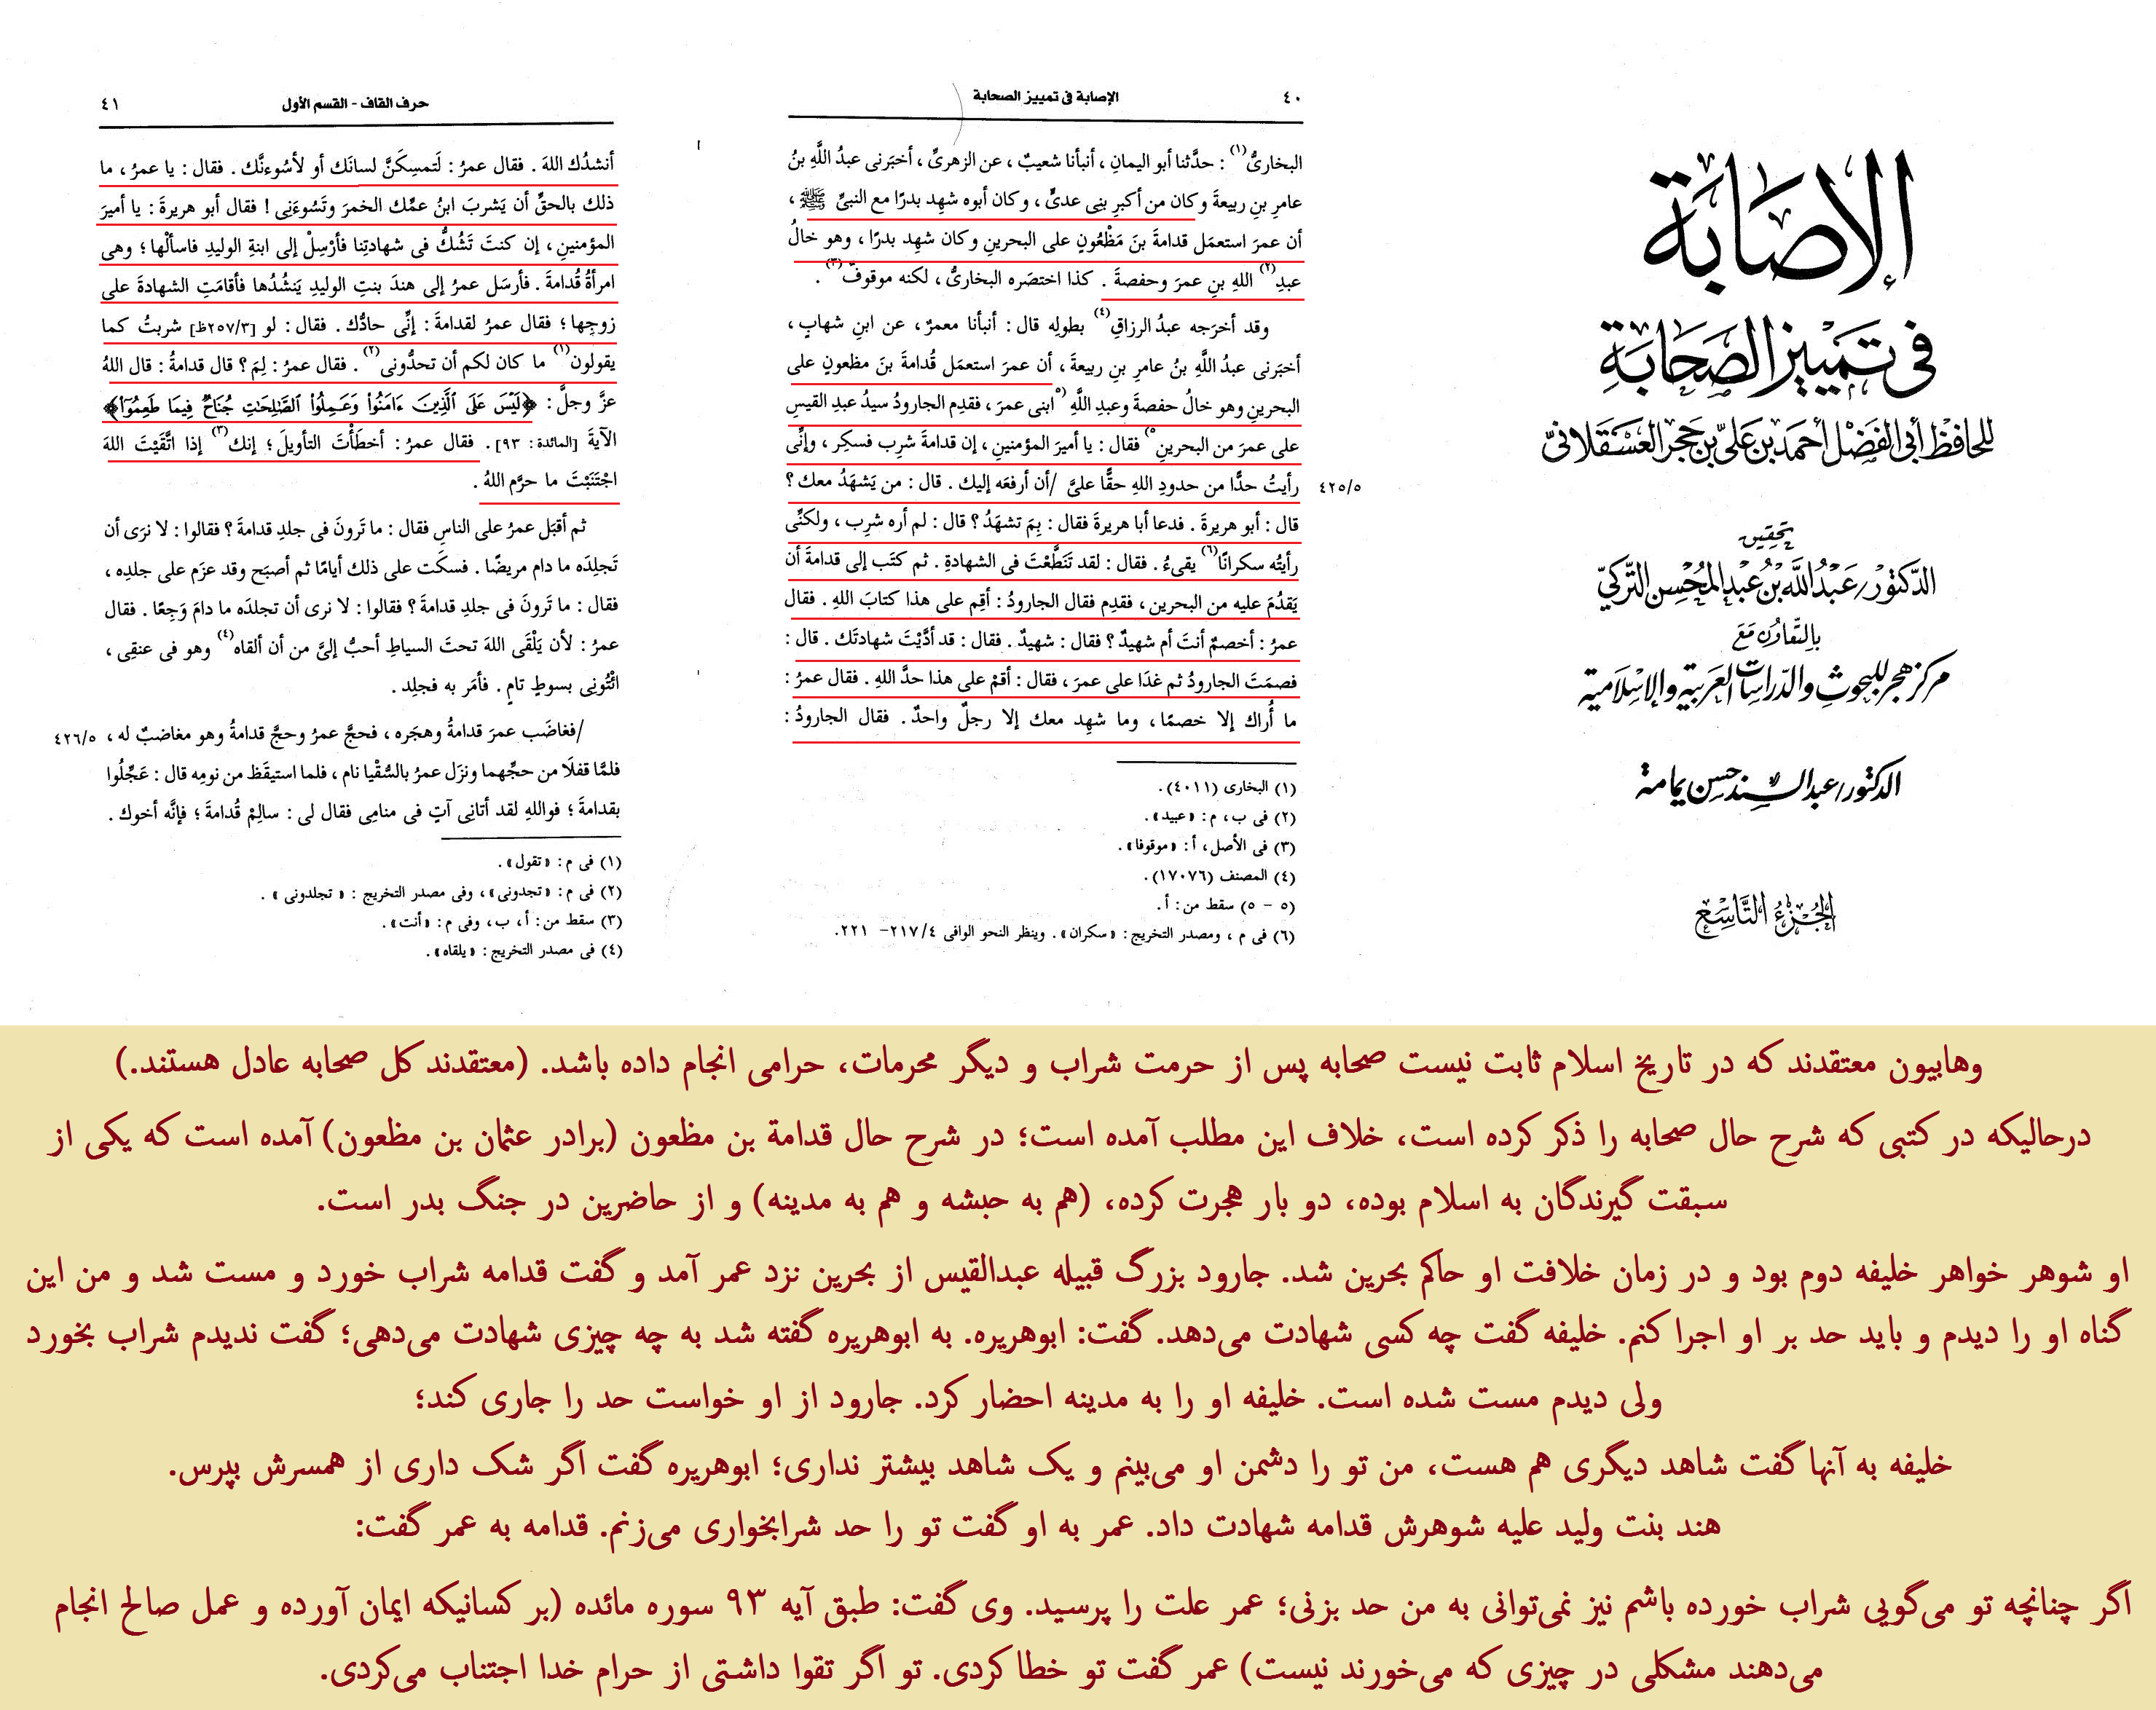 الإصابة
في تمييز الصحابة
للحافظ أبي الفضل أحمد بن علي بن حجر العسقلاني
تحقيق
الدكتور/ عبد الله بن عبد المحسن التركي
بالتعاون مع
مركز هجر للبحوث والدراسات العربية والإسلامية
الدكتور/ عبد السند حسن يمامة
الجزء التاسع
٤٠ الإصابة فى تمييز الصحابة
البخارىُّ(١) : حدَّثنا أبو اليمانِ ، أنبأنا شعيبٌ ، عن الزهرىِّ ، أخبَرنى عبدُ اللَّهِ بنُ
عامرِ بنِ ربيعةَ وكان من أكبرِ بنى عدىٍّ ، وكان أبوه شهِد بدرًا مع النبىِّ ﷺ ،
أن عمرَ استعمَل قدامةَ بنَ مَظْعُونٍ على البحرينِ وكان شهِد بدرًا ، وهو خالُ
عبدِ(٢) اللهِ بنِ عمرَ وحفصةَ . كذا اختصَره البخارىُّ ، لكنه موقوفٌ(٣) .
وقد أخرَجه عبدُ الرزاقِ(٤) بطولِه قال : أنبأنا معمرٌ ، عن ابنِ شهابٍ ،
أخبَرنى عبدُ اللَّهِ بنُ عامرِ بنِ ربيعةَ ، أن عمرَ استعمَل قُدامةَ بنَ مظعونٍ على
البحرينِ وهو خالُ حفصةَ وعبدِ اللَّهِ (٥ابنى عمرَ ، فقدِم الجارودُ سيدُ عبدِ القيسِ
على عمرَ من البحرينِ٥) فقال : يا أميرَ المؤمنينِ ، إن قدامةَ شرِب فسكِر ، وإنِّى
رأيتُ حدًّا من حدودِ اللهِ حقًّا علىَّ /أن أرفعَه إليك . قال : من يَشهَدُ معك ؟
٤٢٥/٥
قال : أبو هريرةَ . فدعا أبا هريرةَ فقال : بِمَ تشهَدُ ؟ قال : لم أره شرِب ، ولكنِّى
رأيتُه سكرانًا(٦) يقىءُ . فقال : لقد تَنَطَّعْتَ فى الشهادةِ . ثم كتَب إلى قدامةَ أن
يَقدُمَ عليه من البحرين ، فقدِم فقال الجارودُ : أقِم على هذا كتابَ اللهِ . فقال
عمرُ : أخصمٌ أنتَ أم شهيدٌ ؟ فقال : شهيدٌ . فقال : قد أدَّيْتَ شهادتَك . قال :
فصمَتَ الجارودُ ثم غدَا على عمرَ ، فقال : أقمْ على هذا حدَّ اللهِ . فقال عمرُ :
ما أُراك إلا خصمًا ، وما شهِد معك إلا رجلٌ واحدٌ . فقال الجارودُ :
(١) البخارى (٤٠١١) .
(٢) فى ب ، م : « عبيد » .
(٣) فى الأصل ، أ : « موقوفا » .
(٤) المصنف (١٧٠٧٦) .
(٥ - ٥) سقط من : أ .
(٦) فى م ، ومصدر التخريج : « سكران » . وينظر النحو الوافى ٤/ ٢١٧- ٢٢١ .
حرف القاف - القسم الأول ٤١
أنشدُك اللهَ . فقال عمرُ : لَتمسِكَنَّ لسانَك أو لأسُوءنَّك . فقال : يا عمرُ ، ما
ذلك بالحقِّ أن يَشربَ ابنُ عمِّك الخمرَ وتَسُوءَنِى ! فقال أبو هريرةَ : يا أميرَ
المؤمنينِ ، إن كنتَ تَشُكُّ فى شهادتِنا فأرْسِلْ إلى ابنةِ الوليدِ فاسألْها ؛ وهى
امرأةُ قُدامةَ . فأرسَل عمرُ إلى هندَ بنتِ الوليدِ يَنشُدُها فأقامَتِ الشهادةَ على
زوجِها ؛ فقال عمرُ لقدامةَ : إنِّى حادُّك . فقال : لو [٢٥٧/٣ظ] شربتُ كما
يقولون(١) ما كان لكم أن تحدُّونى(٢) . فقال عمرُ : لِمَ ؟ قال قدامةُ : قال اللهُ
عزَّ وجلَّ : ﴿لَيْسَ عَلَى ٱلَّذِينَ ءَامَنُوا۟ وَعَمِلُوا۟ ٱلصَّٰلِحَٰتِ جُنَاحٌ فِيمَا طَعِمُوٓا۟﴾
الآيةَ [المائدة : ٩٣] . فقال عمرُ : أخطَأْتَ التأويلَ ؛ إنك(٣) إذا اتَّقَيْتَ اللهَ
اجْتَنَبْتَ ما حرَّم اللهُ .
ثم أقبَل عمرُ على الناسِ فقال : ما تَرونَ فى جلدِ قدامةَ ؟ فقالوا : لا نرَى أن
تَجلِدَه ما دام مريضًا . فسكَت على ذلك أيامًا ثم أصبَح وقد عزَم على جلدِه ،
فقال : ما تَرونَ فى جلدِ قدامةَ ؟ فقالوا : لا نرى أن تجلدَه ما دامَ وَجِعًا . فقال
عمرُ : لأن يَلْقَى اللهَ تحتَ السياطِ أحبُّ إلىَّ من أن ألقاه(٤) وهو فى عنقِى ،
ائْتُونِى بسوطٍ تامٍ . فأمَر به فجلِد .
/فغاضَب عمرَ قدامةُ وهجَره ، فحجَّ عمرُ وحجَّ قدامةُ وهو مغاضبٌ له ،
٤٢٦/٥
فلمَّا قفلَا من حجِّهما ونزَل عمرُ بالسُّقْيا نام ، فلما استيقَظ من نومِه قال : عَجِّلُوا
بقدامةَ ؛ فواللهِ لقد أتانِى آتٍ فى منامِى فقال لى : سالِمْ قُدامةَ ؛ فإنَّه أخوك .
(١) فى م : « تقول » .
(٢) فى م : « تجدونى » ، وفى مصدر التخريج : « تجلدونى » .
(٣) سقط من : أ ، ب ، وفى م : « أنت » .
(٤) فى مصدر التخريج : « يلقاه » .
وهابیون معتقدند که در تاریخ اسلام ثابت نیست صحابه پس از حرمت شراب و دیگر محرمات، حرامی انجام داده باشد. (معتقدند کل صحابه عادل هستند.)
درحالیکه در کتبی که شرح حال صحابه را ذکر کرده است، خلاف این مطلب آمده است؛ در شرح حال قدامة بن مظعون (برادر عثمان بن مظعون) آمده است که یکی از
سبقت گیرندگان به اسلام بوده، دو بار هجرت کرده، (هم به حبشه و هم به مدینه) و از حاضرین در جنگ بدر است.
او شوهر خواهر خلیفه دوم بود و در زمان خلافت او حاکم بحرین شد. جارود بزرگ قبیله عبدالقیس از بحرین نزد عمر آمد و گفت قدامه شراب خورد و مست شد و من این
گناه او را دیدم و باید حد بر او اجرا کنم. خلیفه گفت چه کسی شهادت می‌دهد. گفت: ابوهریره. به ابوهریره گفته شد به چه چیزی شهادت می‌دهی؛ گفت ندیدم شراب بخورد
ولی دیدم مست شده است. خلیفه او را به مدینه احضار کرد. جارود از او خواست حد را جاری کند؛
خلیفه به آنها گفت شاهد دیگری هم هست، من تو را دشمن او می‌بینم و یک شاهد بیشتر نداری؛ ابوهریره گفت اگر شک داری از همسرش بپرس.
هند بنت ولید علیه شوهرش قدامه شهادت داد. عمر به او گفت تو را حد شرابخواری می‌زنم. قدامه به عمر گفت:
اگر چنانچه تو می‌گویی شراب خورده باشم نیز نمی‌توانی به من حد بزنی؛ عمر علت را پرسید. وی گفت: طبق آیه ۹۳ سوره مائده (بر کسانیکه ایمان آورده و عمل صالح انجام
می‌دهند مشکلی در چیزی که می‌خورند نیست) عمر گفت تو خطا کردی. تو اگر تقوا داشتی از حرام خدا اجتناب می‌کردی.